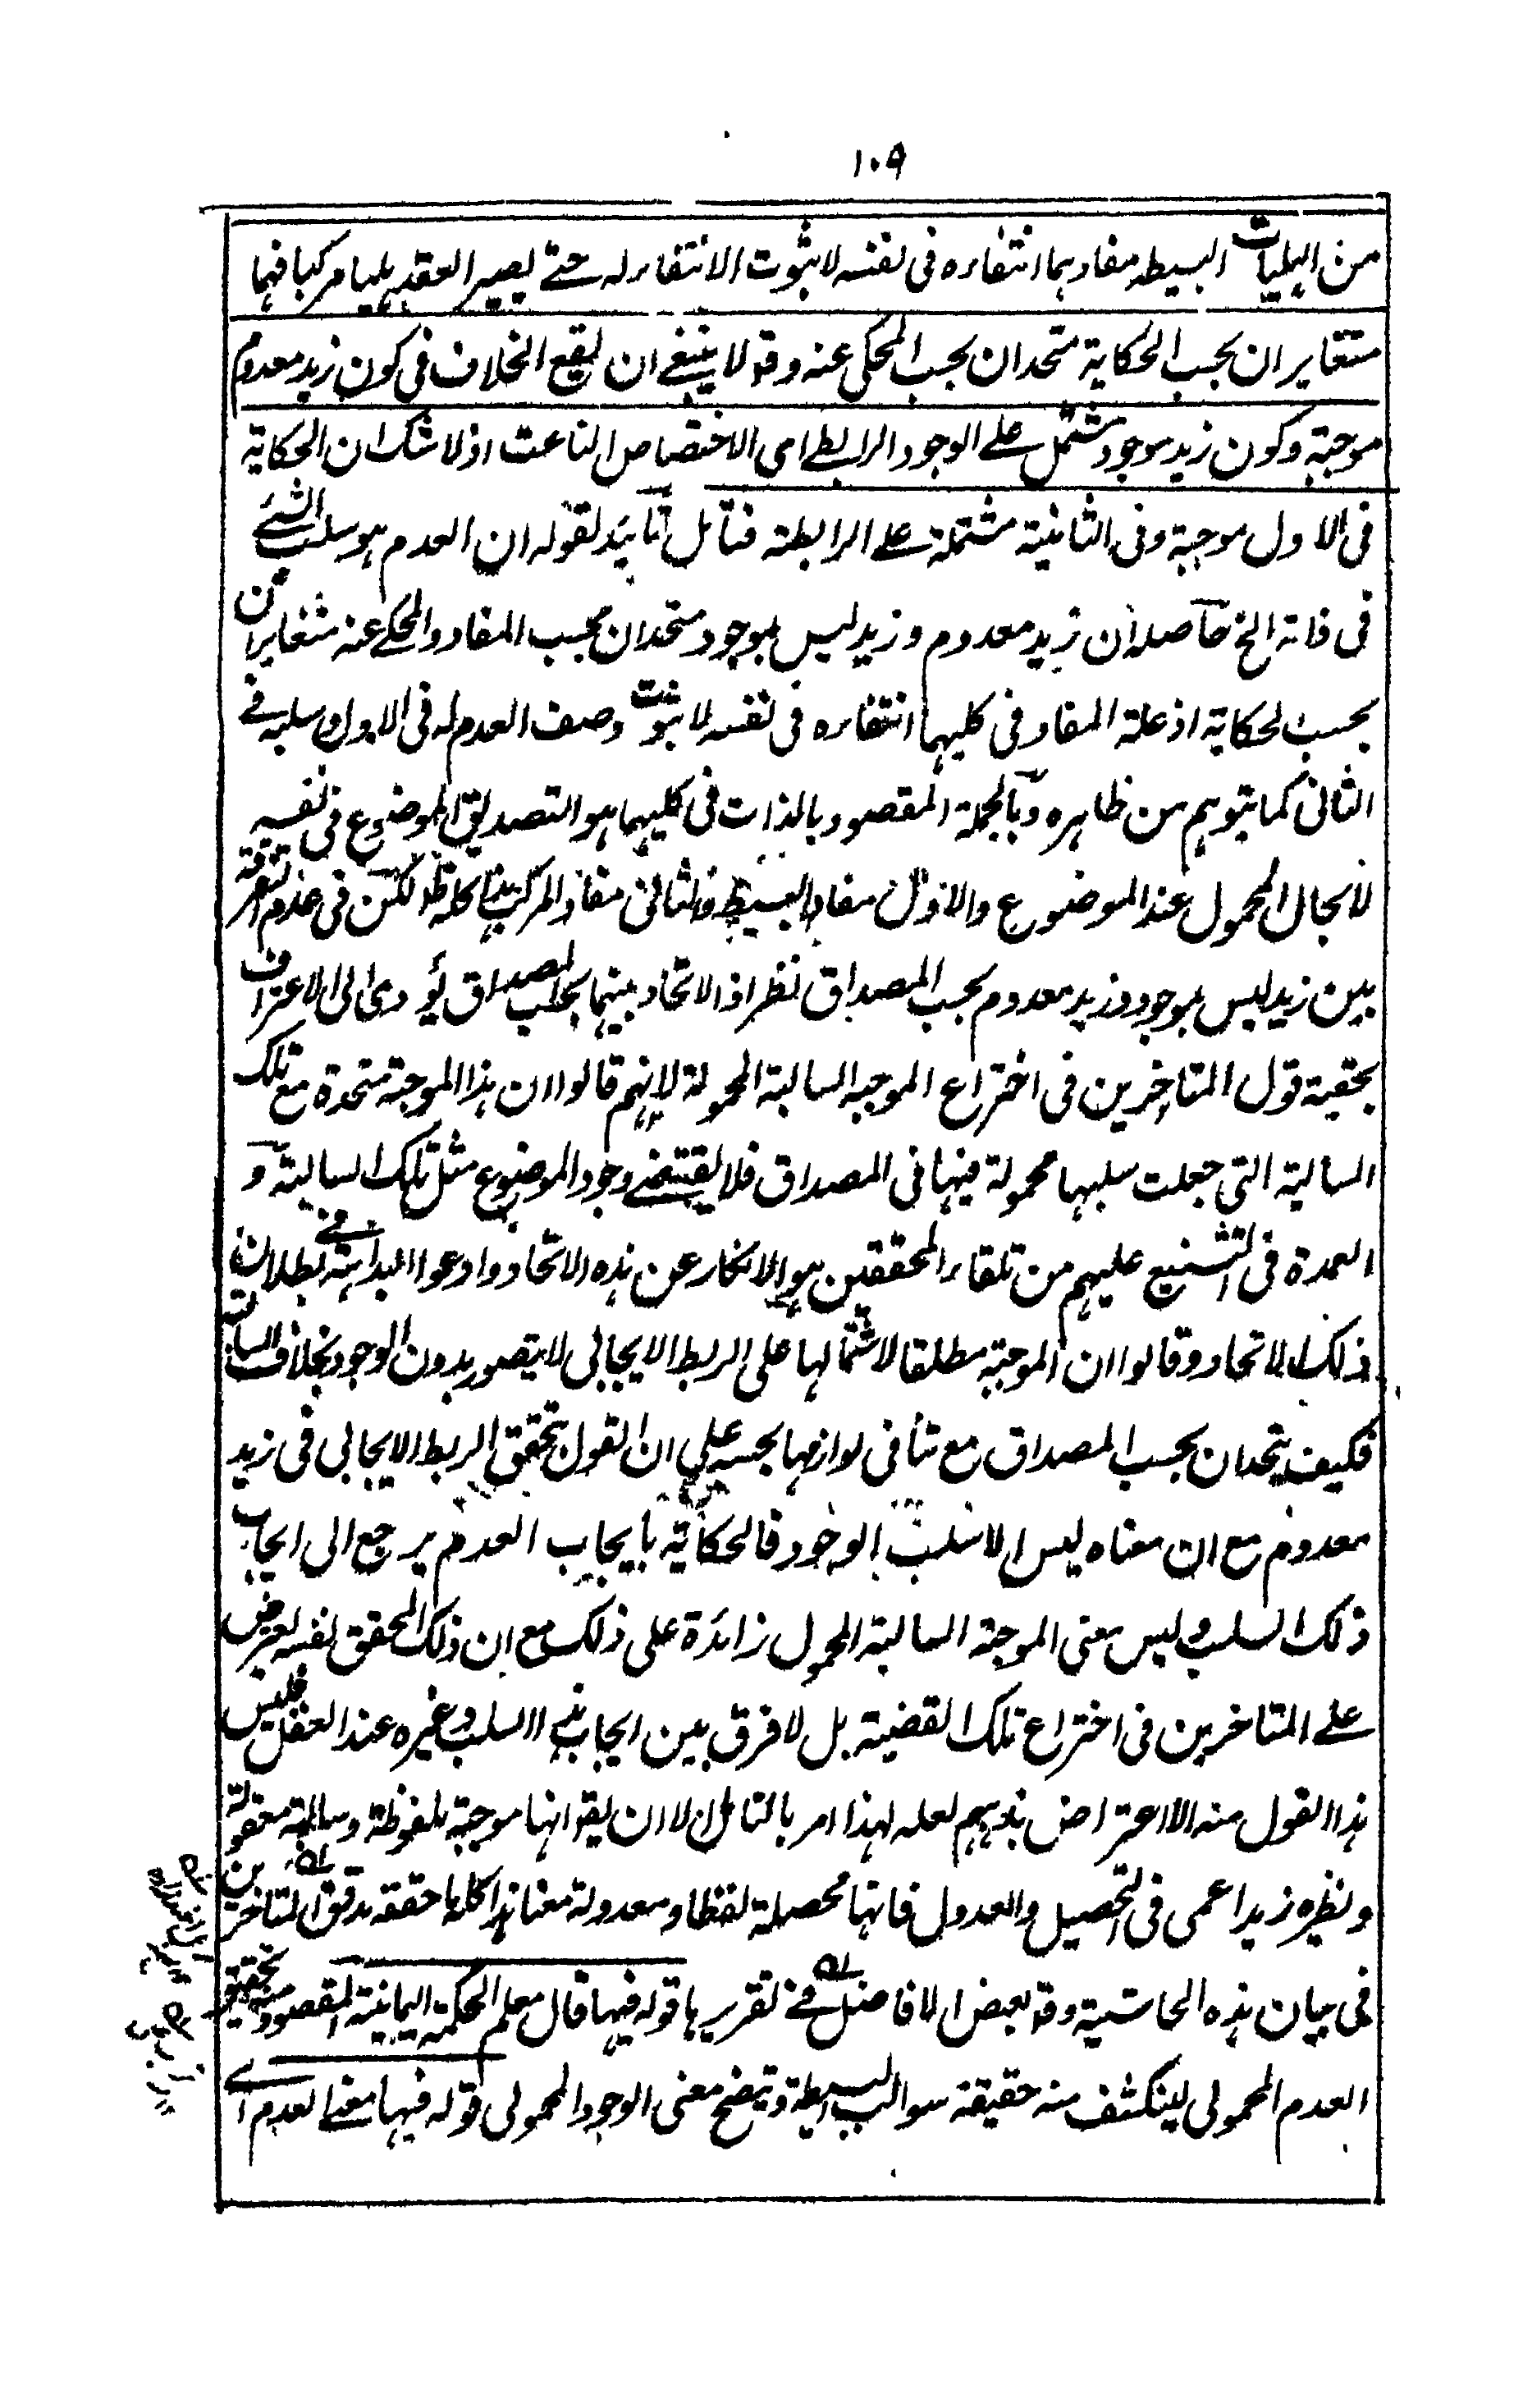 ١٠٩
من الهليات البسيطه مفادهما انتفاره فى نفسه لا ثبوت الانتفاء له حتے يصير العقد هليا مركبا فهما
متغايران بحسب الحكاية متحدان بحسب المحكى عنه وقد لا ينبغے ان يقع الخلاف فى كون زيد معدوم
موجبة وكون زيد موجود مشتمل علے الوجود الرابطے امى الاختصاص الناعت اذ لا شك ان الحكاية
فى الاول موجبة وفى الثانية مشتملة علے الرابطة فتأمل تائيد لقوله ان العدم هو سلب الشئے
فى ذاته الخ حاصله ان زيد معدوم و زيد ليس بموجود متحدان بحسب المفاد والمحكے عنه متغايران
بحسب الحكاية اذ علة المفاد فى كليهما انتفاره فى نفسه لا ثبوت وصف العدم له فى الاول وسلبه فے
الثانى كما يتوهم من ظاهره وبالجملة المقصود بالذات فى كليهما هو التصديق الموضوع فى نفسه
لا بحال المحمول عند الموضوع والاول مفاد البسيط والثانى مفاد المركب هذا كله ظ لكن فى عدم التفرقة
بين زيد ليس بموجود وزيد معدوم بحسب المصداق نظر اذ الاتحاد بينهما بحسب المصداق يؤدى الى الاعتراف
بحقية قول المتاخرين فى اختراع الموجبه السالبة المحمولة لانهم قالوا ان هذا الموجبة متحدة مع تلك
السالبة التى جعلت سلبها محمولة فيها فى المصداق فلا يقتضے وجود الموضوع مثل تلك السالبة و
العمدة فى التشنيع عليهم من تلقاء المحققين هو الانكار عن هذه الاتحاد وادعوا البداهة فے بطلان
ذلك الاتحاد وقالوا ان الموجبة مطلقا لاشتمالها على الربط الايجابى لا يتصور بدون الوجود بخلاف السالبة
فكيف يتحدان بحسب المصداق مع تنافى لوازمها بحسبه على ان القول بتحقق الربط الايجابى فى زيد
معدوم مع ان معناه ليس الا سلب الوجود فالحكاية بايجاب العدم يرجع الى ايجاب
ذلك السلب وليس معنى الموجبة السالبة المحمول زائدة على ذلك مع ان ذلك المحقق نفسه يعرض
علے المتاخرين فى اختراع تلك القضية بل لا فرق بين ايجاب السلب وغيره عند العقل فليس
هذا القول منه الا اعتراض بمذهبهم لعله لهذا امر بالتامل لا ان يقو انها موجبة ملفوظة وسالبة معقولة
ونظيره زيد اعمى فى التحصيل والعدول فانها محصلة لفظا ومعدولة معنا هذا كله ما حققه مدقق المتاخرين
فى بيان هذه الحاشية وقد بعض الافاضل فے تقريرها قوله فيها قال معلم الحكمة اليمانية المقصود منه تحقيق
العدم المحمولى لينكشف منه حقيقة سوالب البسيطة ويتضح معنى الوجود المحمولى قوله فيها معنے العدم اے